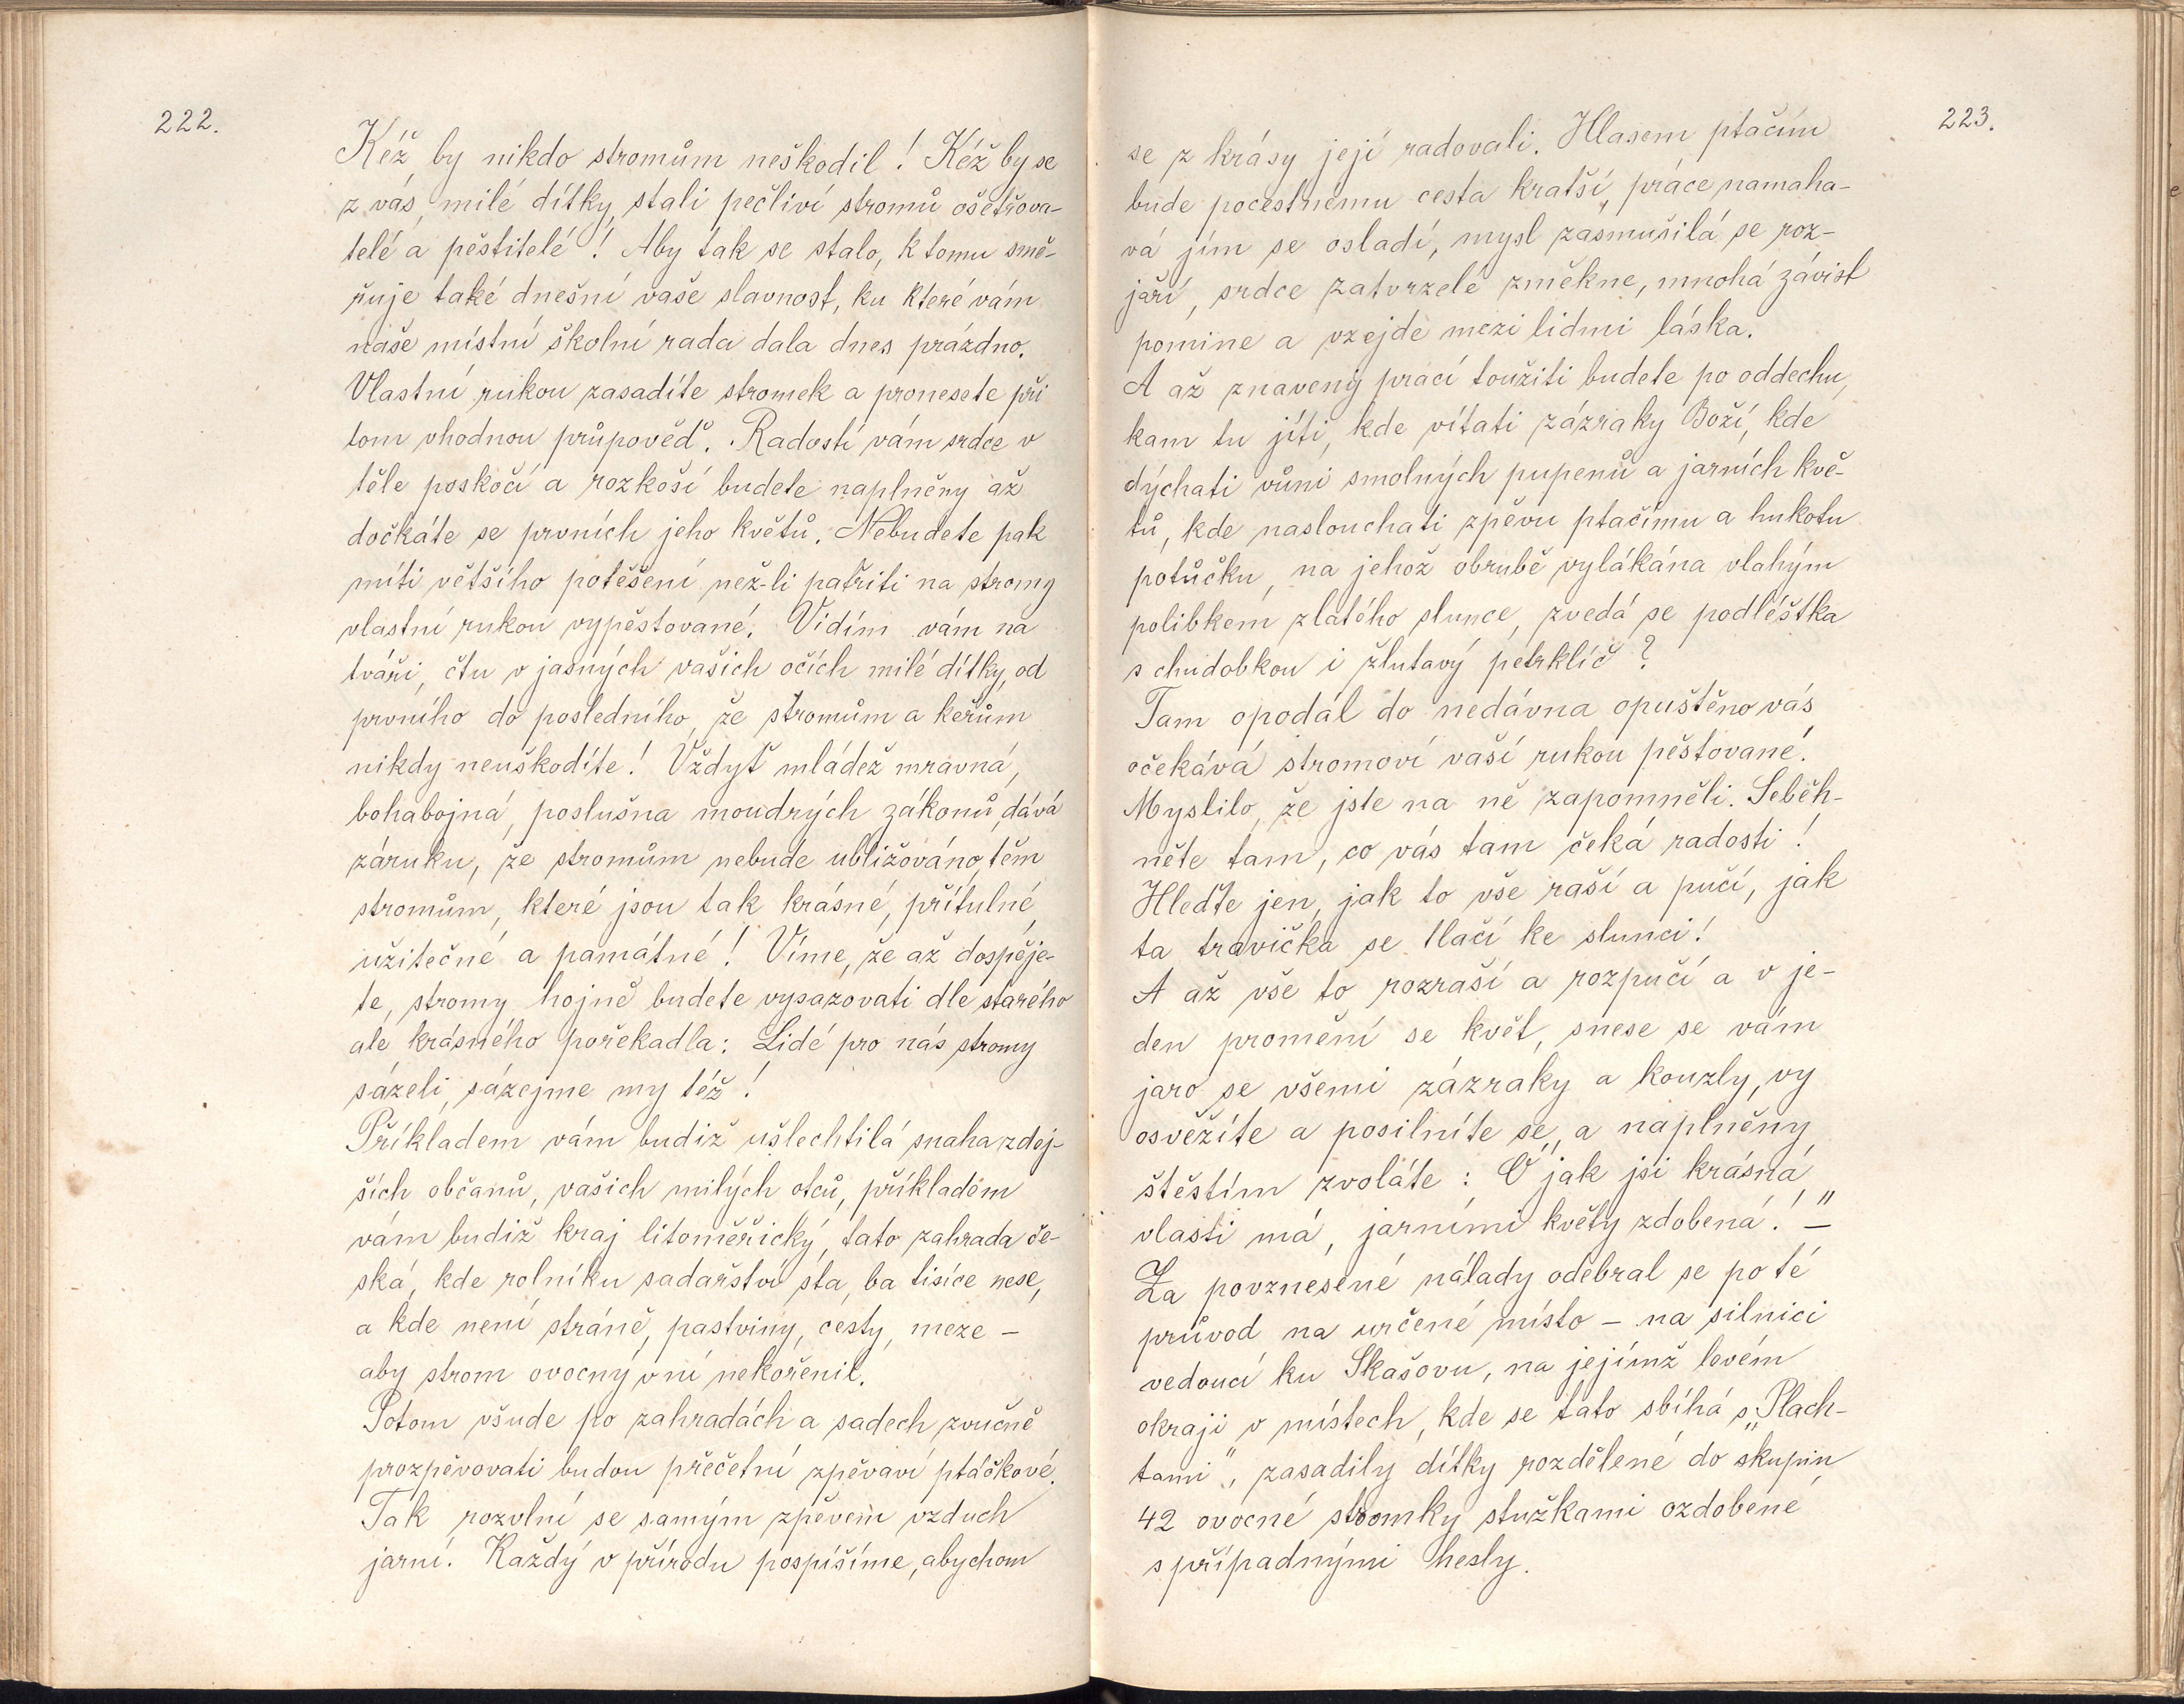 222.
Kéž by nikdo stromům neškodil! Kéž by se
z vás, milé dítky, stali pečliví stromů ošetřova-
telé a pěstitelé! Aby tak se stalo, k tomu smě-
řuje také dnešní vaše slavnost, ku které vám
naše místní školní rada dala dnes prázdno.
Vlastní rukou zasadíte stromek a pronesete při
tom vhodnou průpověď. Radostí vám srdce v
těle poskočí a rozkoší budete naplněny až
dočkáte se prvních jeho květů. Nebudete pak
míti většího potěšení než-li patřiti na stromy
vlastní rukou vypěstované. Vidím vám na
tváři, čtu v jasných vašich očích milé dítky, od
prvního do posledního, že stromům a keřům
nikdy neuškodíte! Vždyť mládež mravná,
bohabojná, poslušna moudrých zákonů, dává
záruku, že stromům nebude ubližováno, těm
stromům, které jsou tak krásné, přítulné,
užitečné a památné! Víme, že až dospěje-
te, stromy hojně budete vysazovati dle starého
ale krásného pořekadla: Lidé pro nás stromy
sázeli, sázejme my též!
Příkladem vám budiž ušlechtilá snaha zdej-
ších občanů, vašich milých otců, příkladem
vám budiž kraj litoměřický, tato zahrada če-
ská, kde rolníku sadařství sta, ba tisíce nese,
a kde není stráně, pastviny, cesty, meze –
aby strom ovocný v ní nekořenil.
Potom všude po zahradách a sadech zvučně
prozpěvovati budou přečetní zpěvaví ptáčkové.
Tak rozvlní se samým zpěvem vzduch
jarní. Každý v přírodu pospíšíme, abychom
223.
se z krásy její radovali. Hlasem ptačím
bude pocestnému cesta kratší, práce namaha-
vá jím se osladí, mysl zasmušilá se roz-
jaří, srdce zatvrzelé změkne, mnohá závist
pomine a vzejde mezi lidmi láska.
A až znaveny prací toužiti budete po oddechu,
kam tu jíti, kde vítati zázraky Boží, kde
dýchati vůni smolných pupenů a jarních kvě-
tů, kde naslouchati zpěvu ptačímu a hukotu
potůčku, na jehož obrubě vylákána vlahým
polibkem zlatého slunce, zvedá se podléštka
s chudobkou i žlutavý petrklíč?
Tam opodál do nedávna opuštěno vás
očekává stromoví vaší rukou pěstované.
Myslilo, že jste na ně zapomněli. Seběh-
něte tam, co vás tam čeká radosti!
Hleďte jen, jak to vše raší a pučí, jak
ta travička se tlačí ke slunci!
A až vše to rozraší a rozpučí a v je-
den promění se květ, snese se vám
jaro se všemi zázraky a kouzly, vy
osvěžíte a posilníte se, a naplněny
štěstím zvoláte: „Ó jak jsi krásná
vlasti má, jarními květy zdobená!" –
Za povznesené nálady odebral se po té
průvod na určené místo – na silnici
vedoucí ku Skašovu, na jejímž levém
okraji v místech, kde se tato sbíhá s „Plach-
tami", zasadily dítky rozdělené do skupin
42 ovocné stromky stužkami ozdobené
s případnými hesly.